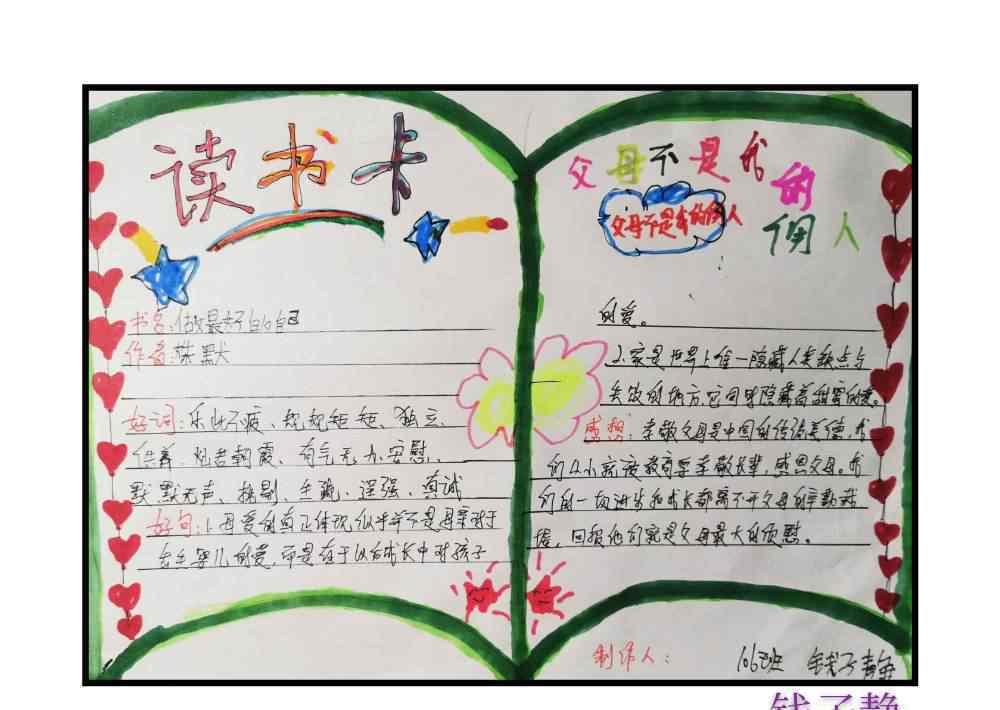 读书卡
书名:做最好的自己
作者:陈默
好词:乐此不疲、规规矩矩、独立、
供养、灿若朝霞、有气无力、安慰、
默默无声、挑剔、生疏、逞强、真诚
好句:1.母爱的真正体现,似乎并不是母亲对于
出生婴儿的爱,而是在于以后成长中对孩子
父母不是我的
佣人
父母不是我的佣人
的爱。
2.家是世界上唯一隐藏人类缺点与
失败的地方,它同时隐藏着甜蜜的爱。
感想:孝敬父母是中国的传统美德,我
们从小就被教育要孝敬长辈,感恩父母。我
们的一切进步和成长都离不开父母的辛勤栽
培,回报他们就是父母最大的欣慰。
制作人:
106班 钱子静
钱子静